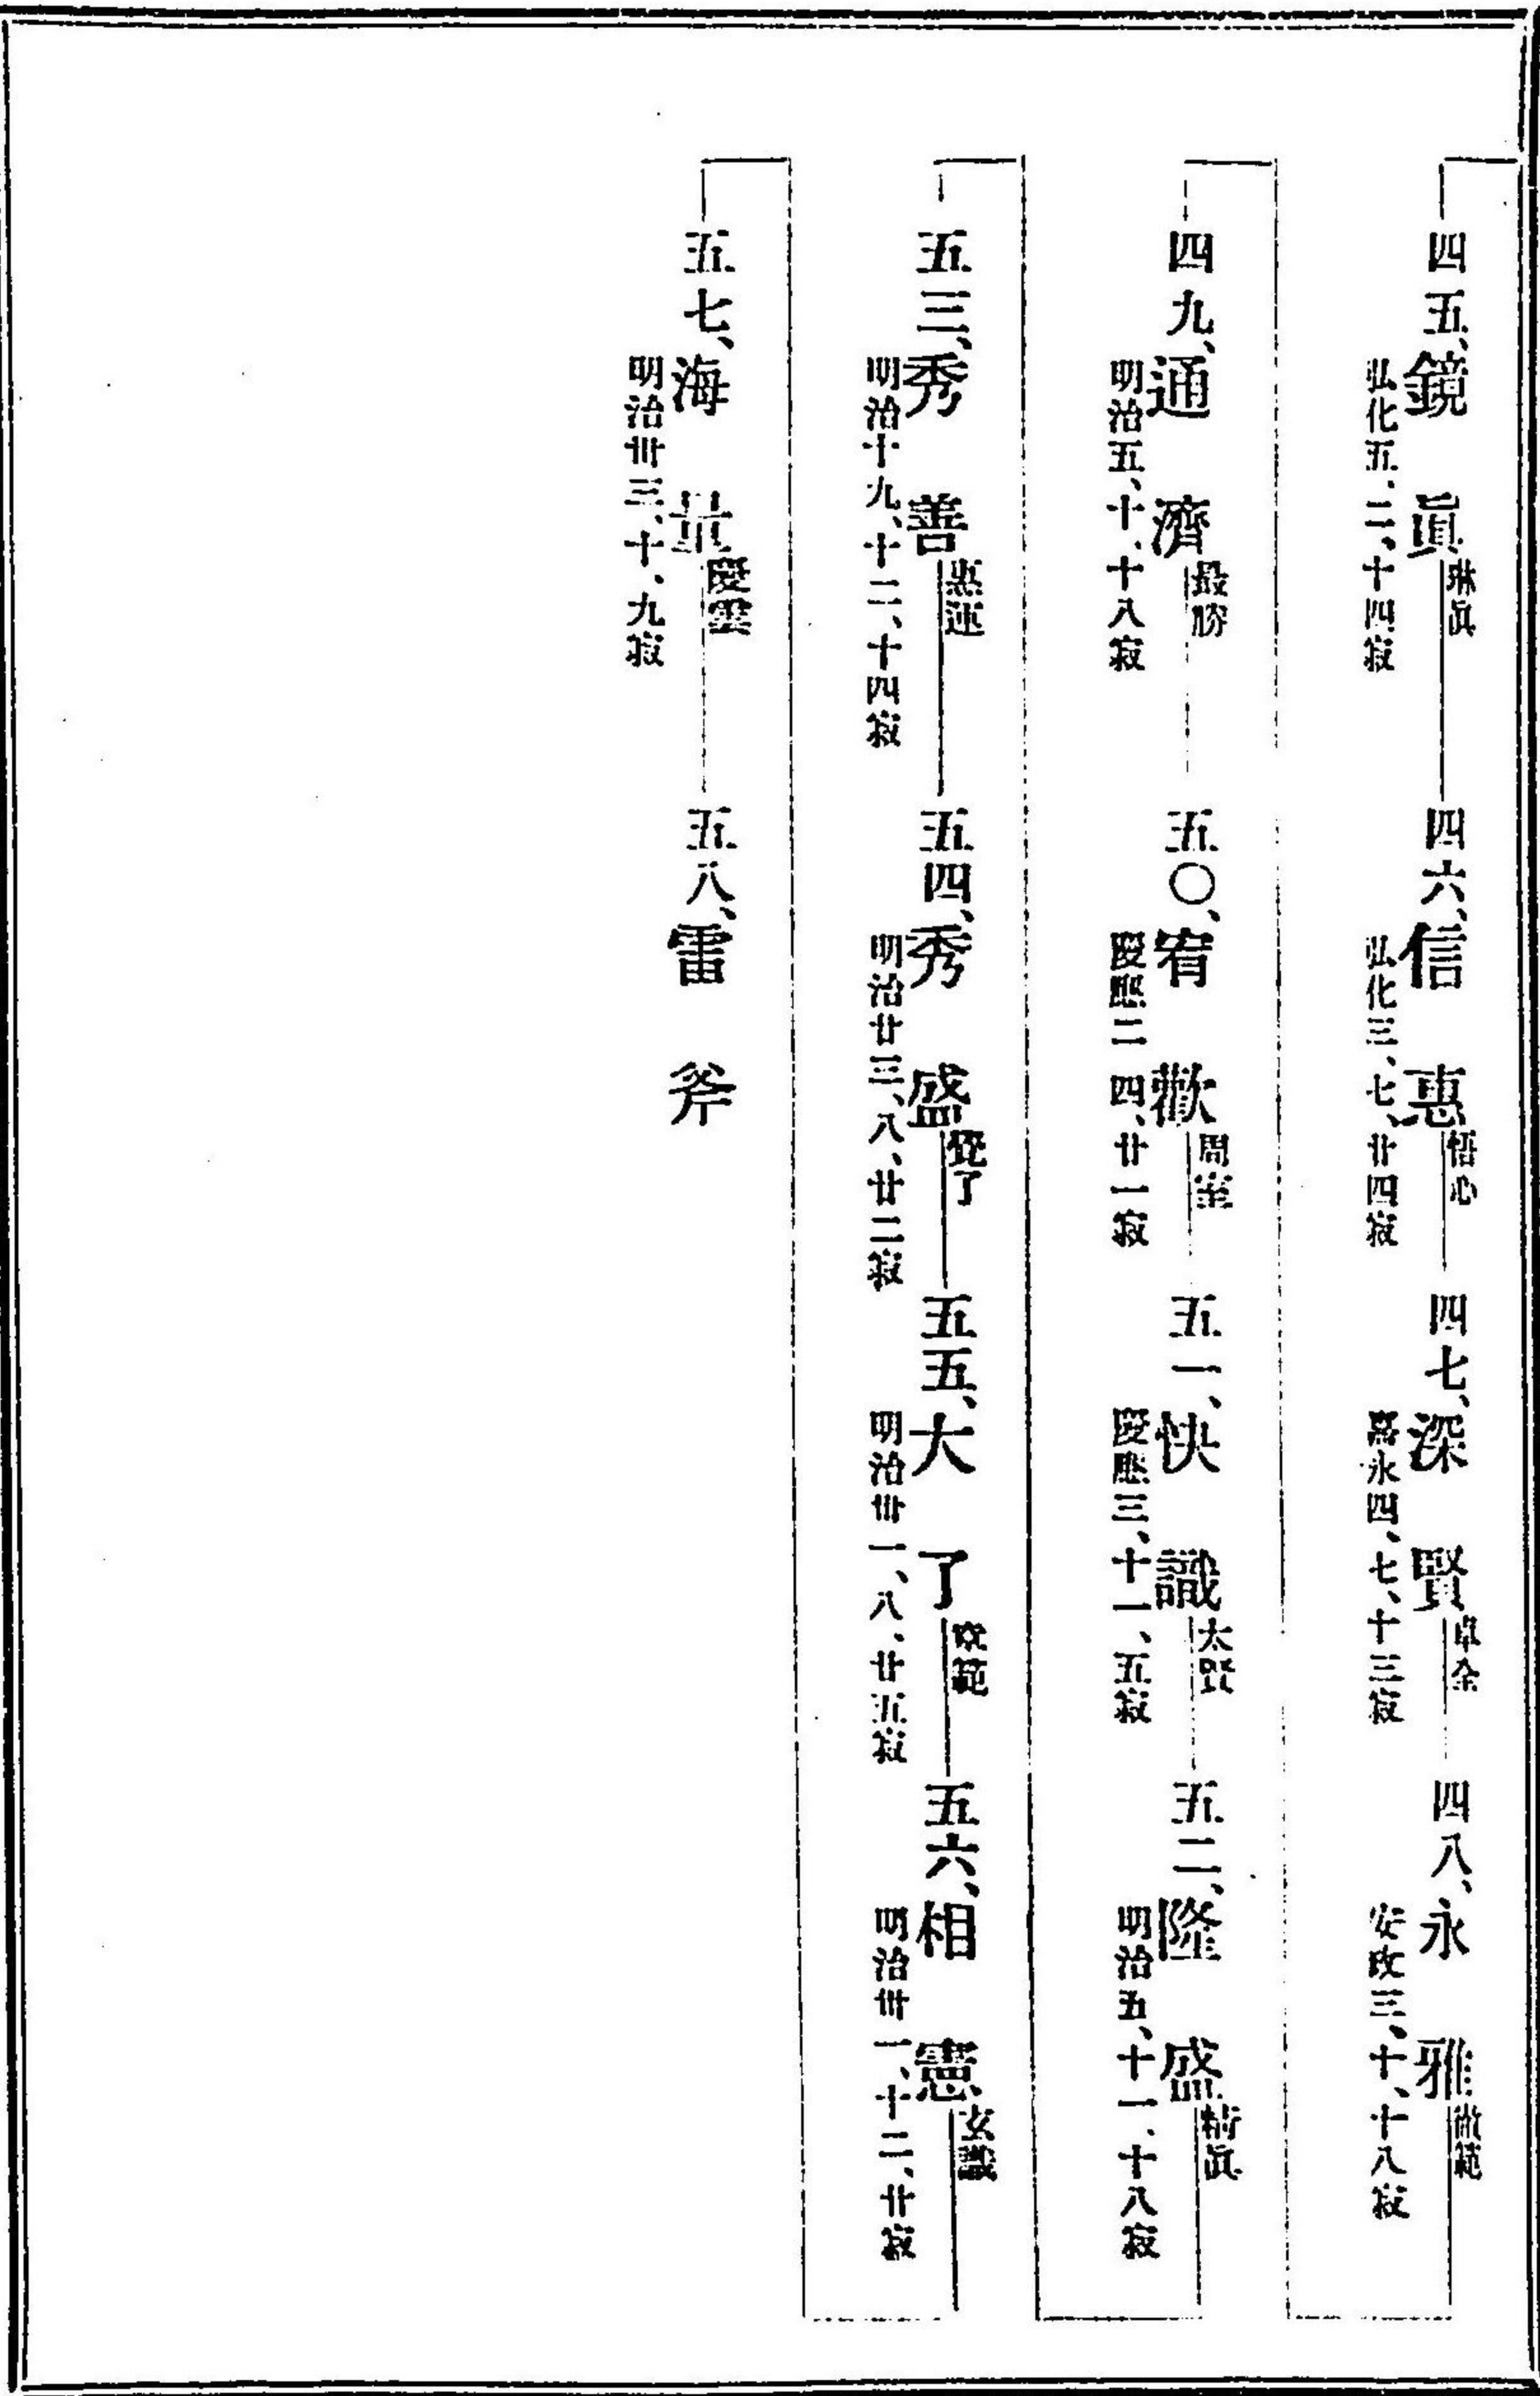 四五、鏡眞 琳眞
弘化五、二、十四寂
四六、信惠 悟心
弘化三、七、廿四寂
四七、深賢 卓全
嘉永四、七、十三寂
四八、永雅
安政三、十、十八寂
四九、通濟 最勝
明治五、十、十八寂
五〇、宥歡 周室
慶應二 四、廿一寂
五一、快識 太賢
慶應三、十一、五寂
五二、隆盛
明治五、十一、十八寂
五三、秀善 惠運
明治十九、十二、十四寂
五四、秀盛 覺了
明治廿三、八、廿二寂
五五、大了
明治卅一、八、廿五寂
五六、相憲 玄識
明治卅一、十二、廿寂
五七、海量 慶雲
明治卅三、十、九寂
五八、雷斧